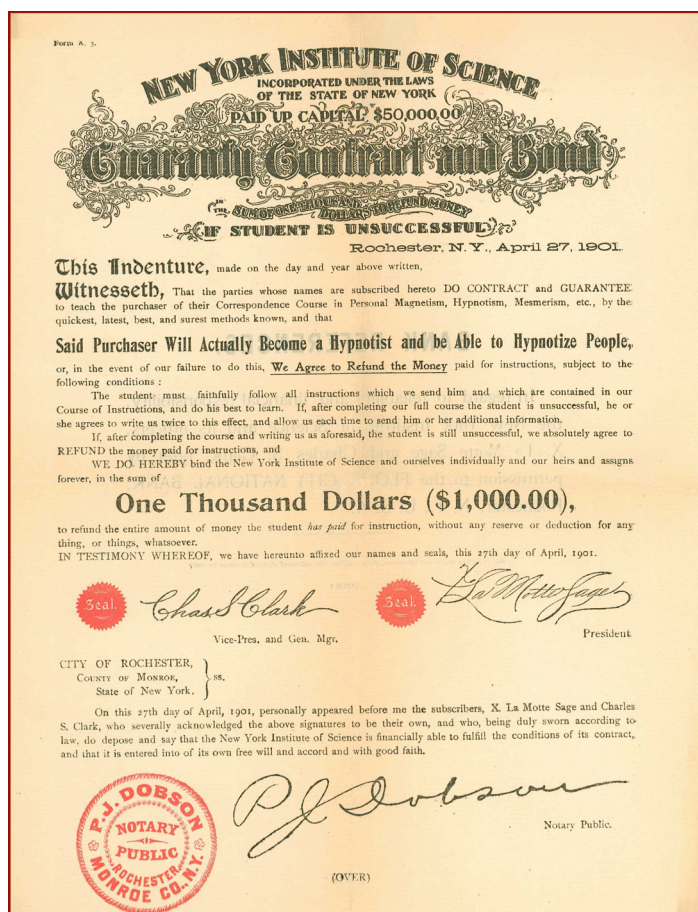 Form A. 3.
NEW YORK INSTITUTE OF SCIENCE
INCORPORATED UNDER THE LAWS
OF THE STATE OF NEW YORK
PAID UP CAPITAL $50,000,00
Guaranty Contract and Bond
IN THE SUM OF ONE THOUSAND DOLLARS TO REFUND MONEY
IF STUDENT IS UNSUCCESSFUL
Rochester, N. Y., April 27, 1901.
This Indenture, made on the day and year above written,
Witnesseth, That the parties whose names are subscribed hereto DO CONTRACT and GUARANTEE
to teach the purchaser of their Correspondence Course in Personal Magnetism, Hypnotism, Mesmerism, etc., by the
quickest, latest, best, and surest methods known, and that
Said Purchaser Will Actually Become a Hypnotist and be Able to Hypnotize People,
or, in the event of our failure to do this, We Agree to Refund the Money paid for instructions, subject to the
following conditions :
The student must faithfully follow all instructions which we send him and which are contained in our
Course of Instructions, and do his best to learn. If, after completing our full course the student is unsuccessful, he or
she agrees to write us twice to this effect, and allow us each time to send him or her additional information.
If, after completing the course and writing us as aforesaid, the student is still unsuccessful, we absolutely agree to
REFUND the money paid for instructions, and
WE DO HEREBY bind the New York Institute of Science and ourselves individually and our heirs and assigns
forever, in the sum of
One Thousand Dollars ($1,000.00),
to refund the entire amount of money the student has paid for instruction, without any reserve or deduction for any
thing, or things, whatsoever.
IN TESTIMONY WHEREOF, we have hereunto affixed our names and seals, this 27th day of April, 1901.
Seal. Chas S Clark Seal. X. La Motte Sage
Vice-Pres. and Gen. Mgr. President
CITY OF ROCHESTER,
COUNTY OF MONROE, ss.
State of New York.
On this 27th day of April, 1901, personally appeared before me the subscribers, X. La Motte Sage and Charles
S. Clark, who severally acknowledged the above signatures to be their own, and who, being duly sworn according to
law, do depose and say that the New York Institute of Science is financially able to fulfill the conditions of its contract,
and that it is entered into of its own free will and accord and with good faith.
P J Dobson
Notary Public.
P. J. DOBSON
NOTARY
PUBLIC
ROCHESTER,
MONROE CO., N.Y.
(OVER)